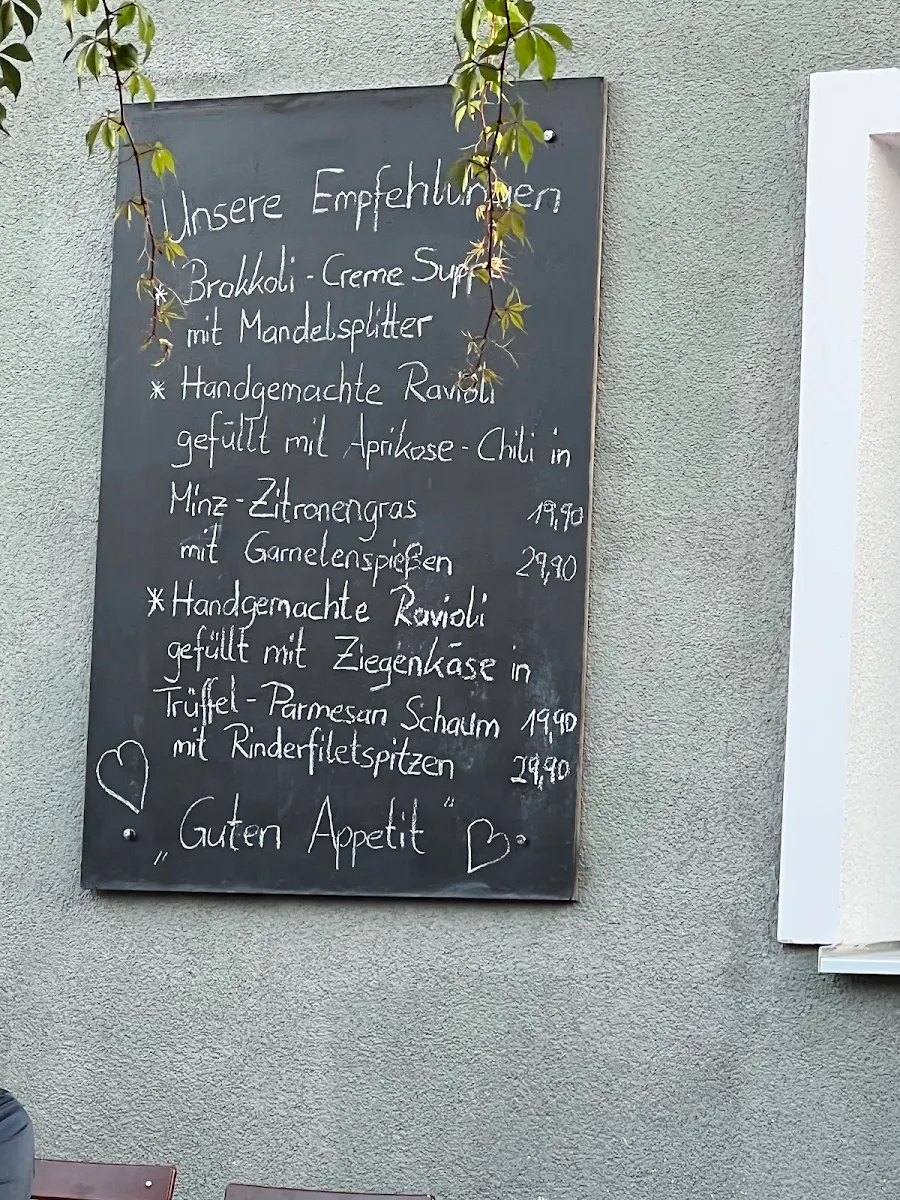 Unsere Empfehlungen
* Brokkoli-Creme Suppe
mit Mandelsplitter
* Handgemachte Ravioli
gefüllt mit Aprikose-Chili in
Minz-Zitronengras 19,90
mit Garnelenspießen 29,90
* Handgemachte Ravioli
gefüllt mit Ziegenkäse in
Trüffel-Parmesan Schaum 19,90
mit Rinderfiletspitzen 29,90
„Guten Appetit“